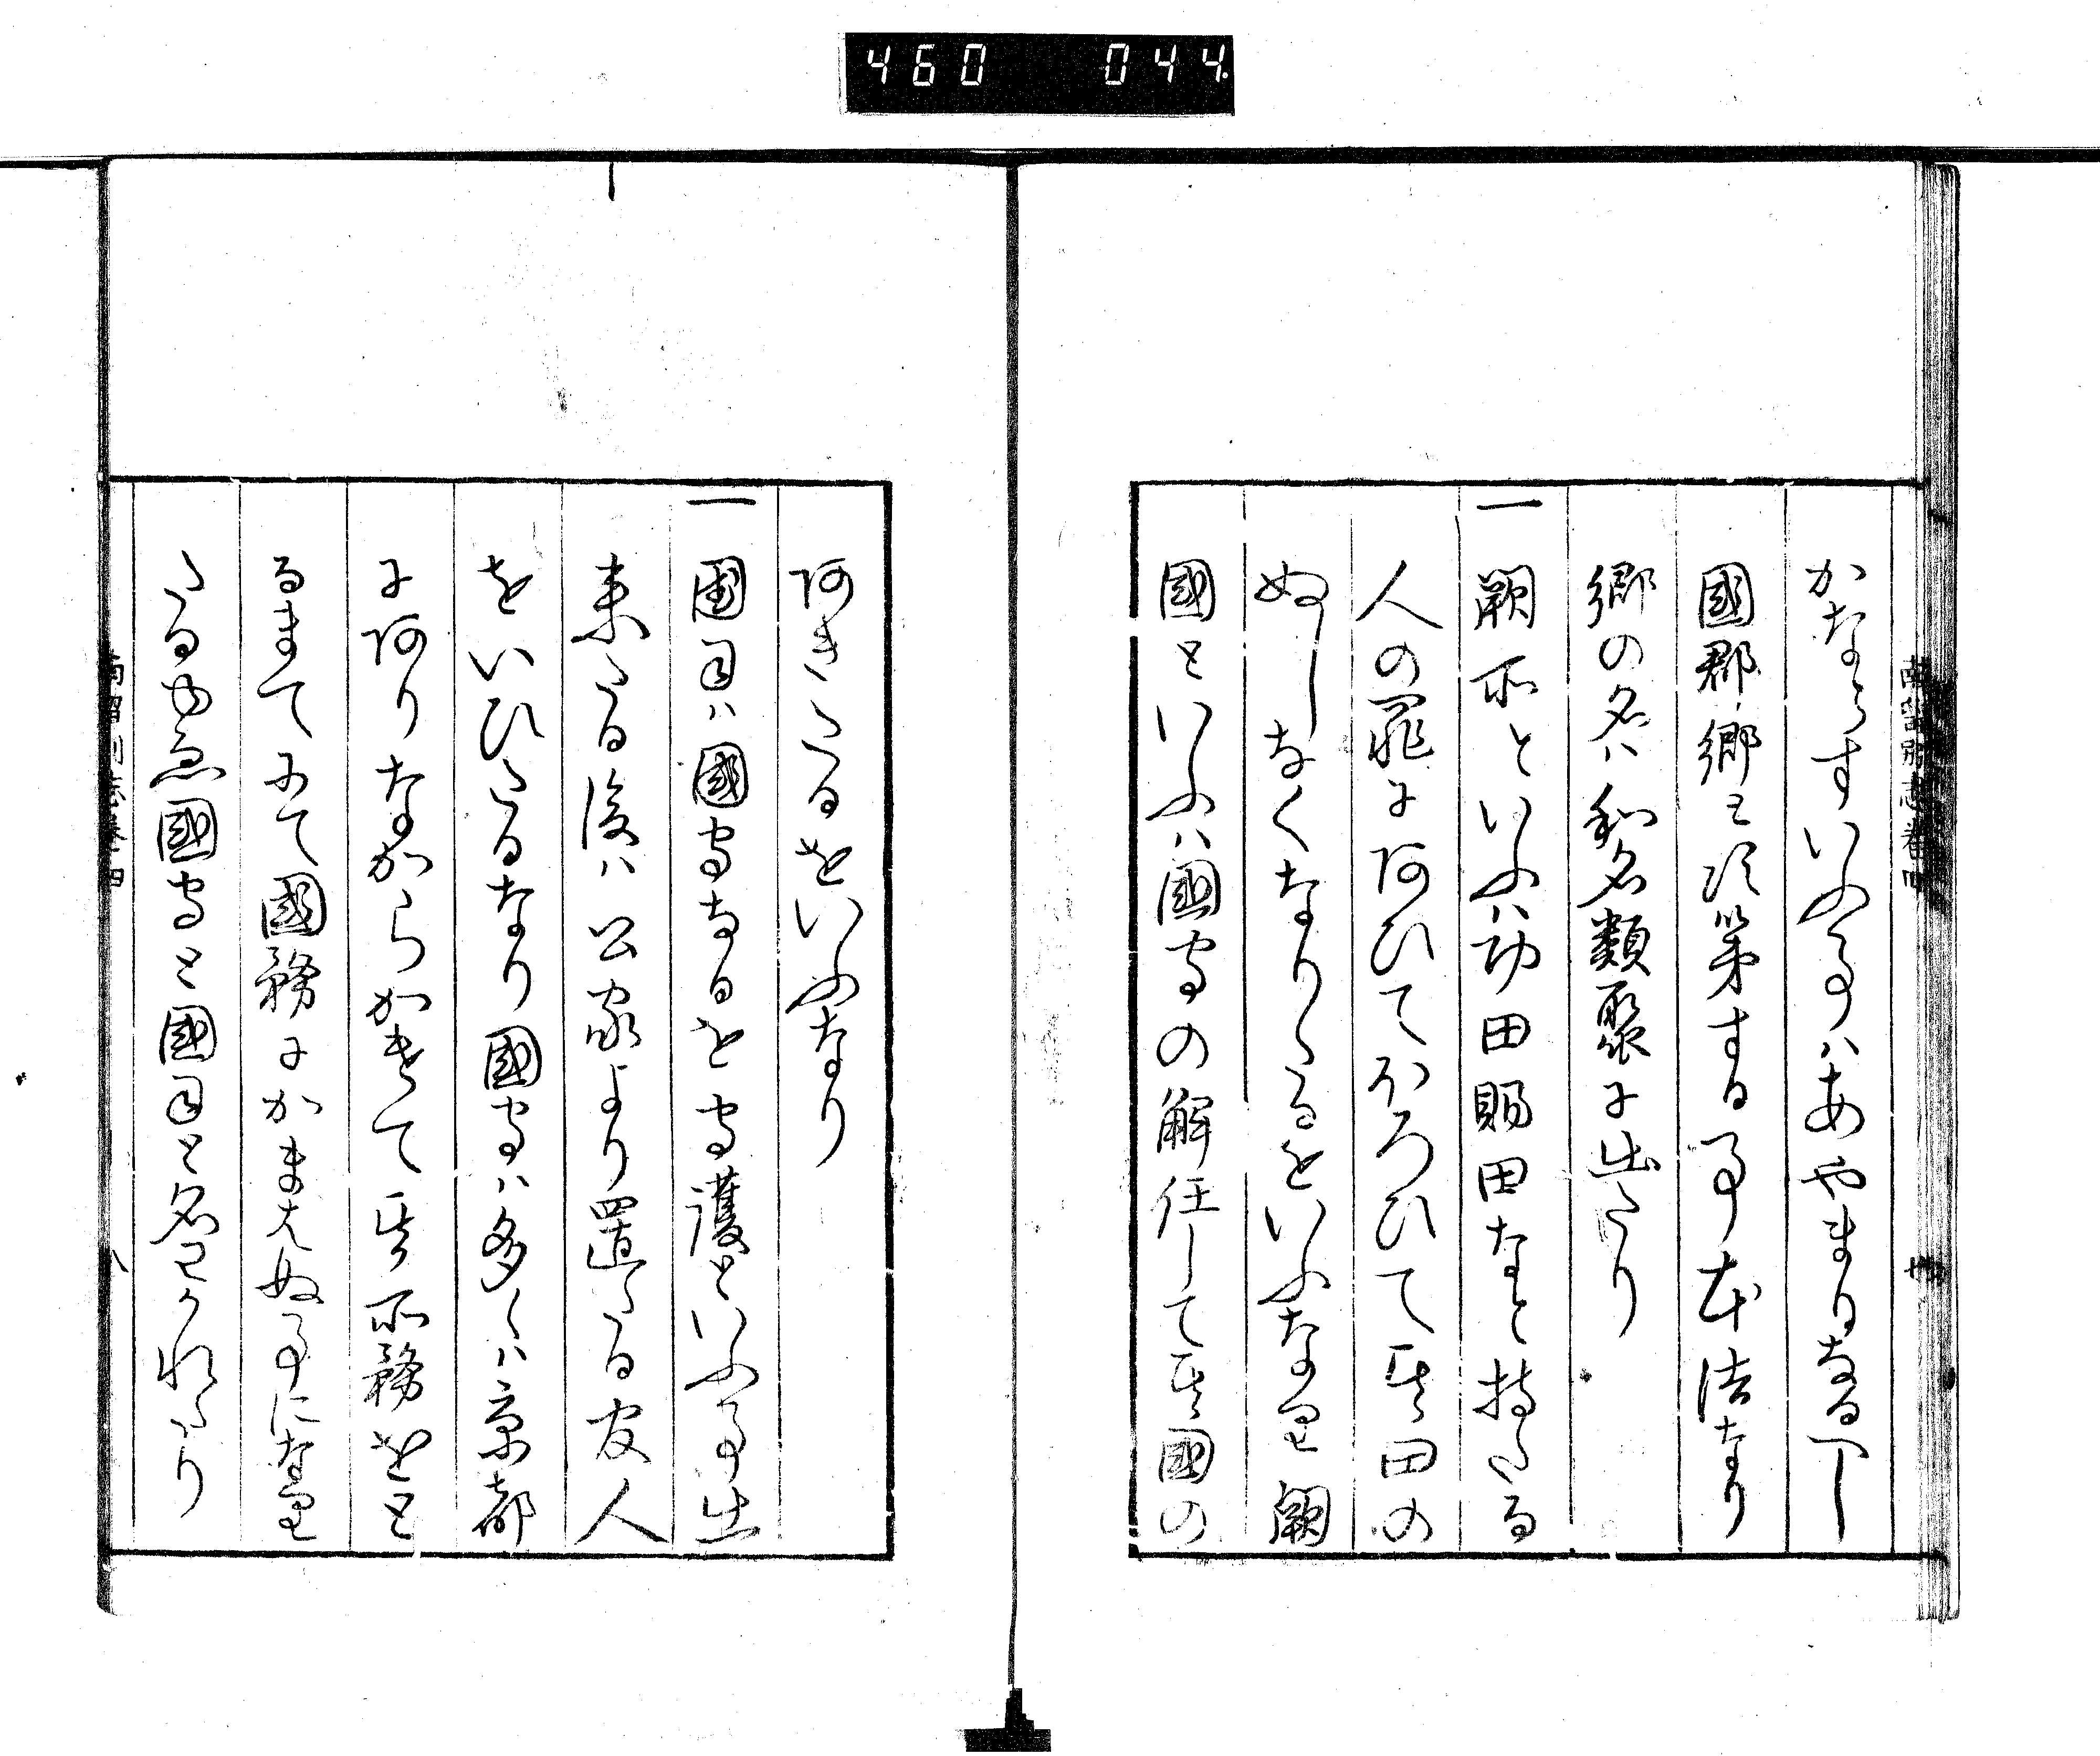 460 044
かならすいふ事ハあやまりなるへし
國郡郷と次第する事本法なり
郷の名ハ和名類聚に出たり
一 闕所といふハ功田賜田なと持たる
人の罪にあひてほろひて其田の
ぬしなくなりたるをいふなり闕
國といふハ國守の解任して其國の
あきたるをいふなり
一 國司ハ國守なるを守護といふ事出
来たる後ハ公家より置たる官人
をいひたるなり國守ハ多くハ京都
にありなからかねて其所務をと
るまてにて國務にかまえぬ事になり
たるゆゑ國守と國司と名わかれたり
南留別志卷四
八